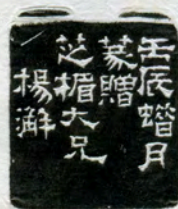 壬辰蜡月
篆贈
芝楣大兄
楊澥